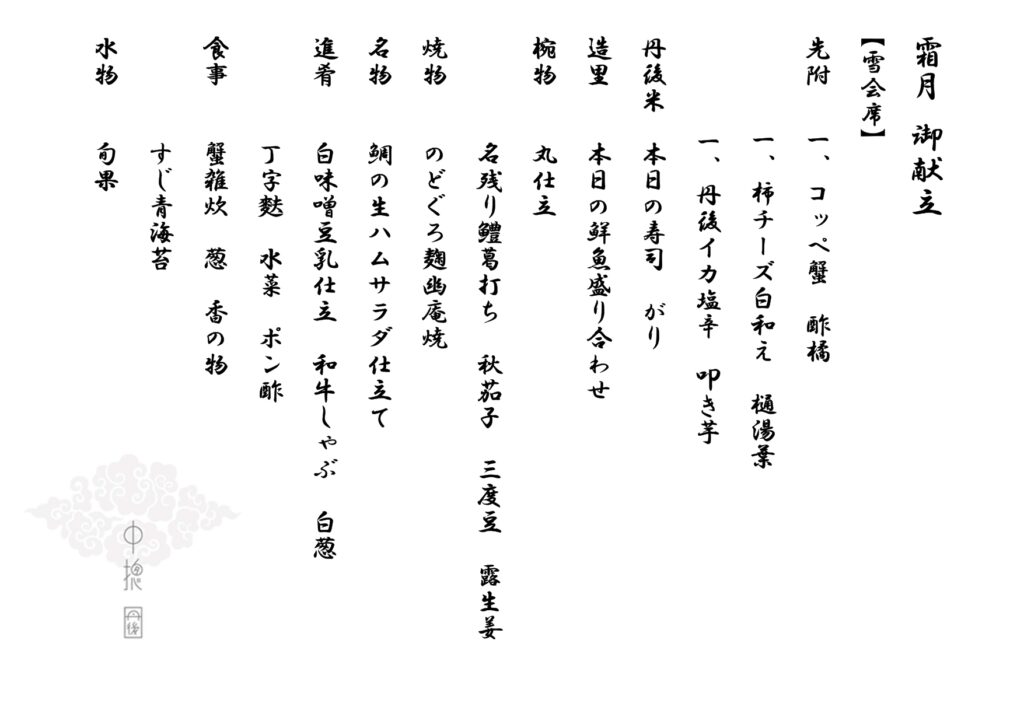 霜月　御献立
【雪会席】
先附　一、コッペ蟹　酢橘
一、柿チーズ白和え　樋湯葉
一、丹後イカ塩辛　叩き芋
丹後米　本日の寿司　がり
造里　本日の鮮魚盛り合わせ
椀物　丸仕立
名残り鱧葛打ち　秋茄子　三度豆　露生姜
焼物　のどぐろ麹幽庵焼
名物　鯛の生ハムサラダ仕立て
進肴　白味噌豆乳仕立　和牛しゃぶ　白葱
丁字麩　水菜　ポン酢
食事　蟹雑炊　葱　香の物
すじ青海苔
水物　旬果
中
丹後